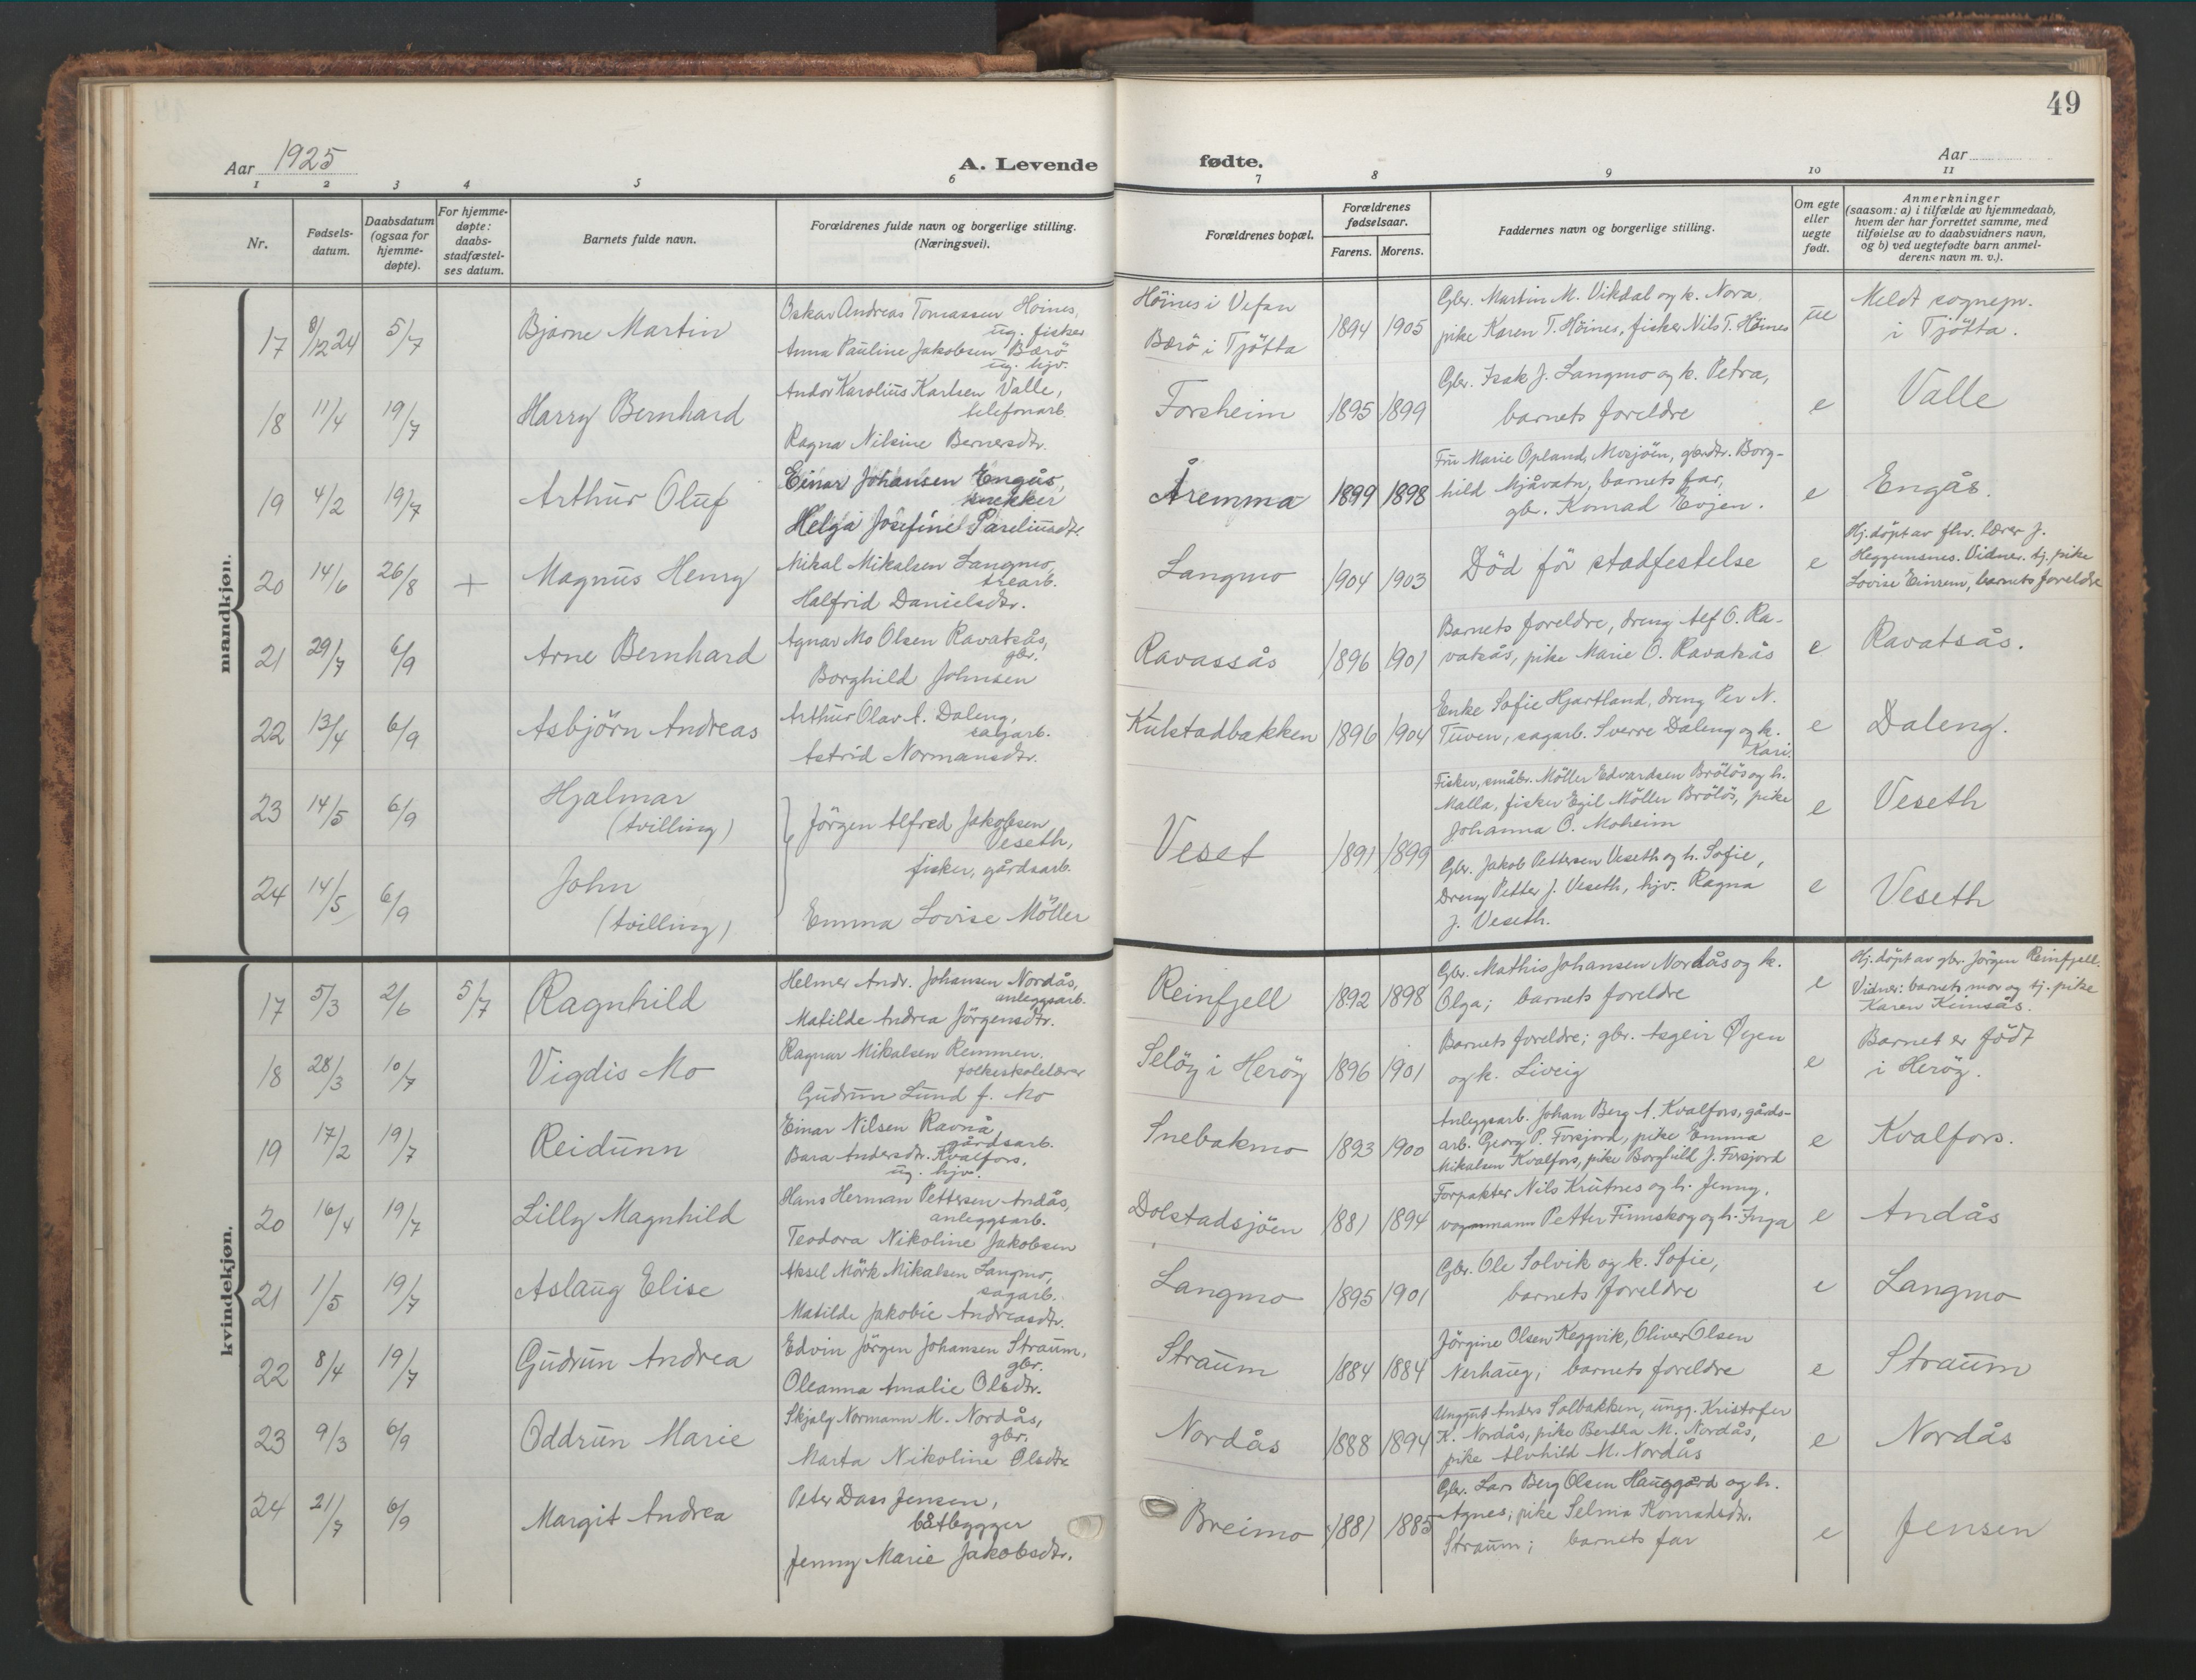 49
Aar 1925
A. Levende
fødte.
Aar
1 2 3 4 5 6 7 8 9 10 11
Nr.
Fødsels-
datum.
Daabsdatum
(ogsaa for
hjemme-
døpte).
For hjemme-
døpte:
daabs-
stadfæstel-
ses datum.
Barnets fulde navn.
Forældrenes fulde navn og borgerlige stilling.
(Næringsvei).
Forældrenes bopæl.
Forældrenes
fødselsaar.
Farens. Morens.
Faddernes navn og borgerlige stilling.
Om egte
eller
uegte
født.
Anmerkninger
(saasom: a) i tilfælde av hjemmedaab,
hvem der har forrettet samme, med
tilføielse av to daabsvidners navn,
og b) ved uegtefødte barn anmel-
derens navn m. v.).
mandkjøn.
17 8/12 24 5/7 Bjarne Martin
Oskar Andreas Tomassen Höines,
ug. fisker
Anna Pauline Jakobsen Bærö
ug. hjv.
Höines i Vefsn
Bærö i Tjötta
1894 1905
Gbr. Martin M. Vikdal og k. Nora,
pike Karen T. Höines, fisker Nils T. Höines
ue
Meldt sognepr.
i Tjötta.
18 11/4 19/7 Harry Bernhard
Andor Karolius Karlsen Valle,
telefonarb.
Ragna Nilsine Bernersdtr.
Forsheim
1895 1899
Gbr. Isak J. Langmo og k. Petra,
barnets foreldre
e
Valle
19 4/2 19/7 Arthur Oluf
Einar Johansen Engås,
snekker
Helga Josefine Pareliusdtr.
Åremma
1899 1898
Fru Marie Opland, Mosjöen, gbrdtr. Borg-
hild Mjåvatn, barnets far,
gbr. Konrad Evjen.
e
Engås.
20 14/6 26/8 + Magnus Henry
Mikal Mikalsen Langmo,
trearb.
Halfrid Danielsdtr.
Langmo
1904 1903
Död för stadfestelse
e
Hj. döpt av fhv. lærer J.
Heggemsnes. Vidner. tj. pike
Lovise Einrem, barnets foreldre
21 29/7 6/9 Arne Bernhard
Agnar Mo Olsen Ravatsås,
gbr.
Borghild Johnsen
Ravassås
1896 1901
Barnets foreldre, dreng Alf O. Ra-
vatsås, pike Marie O. Ravatsås
e
Ravatsås.
22 13/4 6/9 Asbjörn Andreas
Arthur Olav A. Daleng,
sagarb.
Astrid Normansdtr.
Kulstadbakken
1896 1904
Enke Sofie Hjartland, dreng Per N.
Tuven, sagarb. Sverre Daleng og k.
Kari.
e
Daleng.
23 14/5 6/9 Hjalmar
(tvilling)
Jörgen Alfred Jakobsen
Veseth,
fisker, gårdsarb.
Veset
1891 1899
Fisker, småbr. Möller Edvardsen Brölös og h.
Malla, fisker Egil Möller Brölös, pike
Johanna O. Moheim
e
Veseth
24 14/5 6/9 John
(tvilling)
Emma Lovise Möller
Gbr. Jakob Pettersen Veseth og h. Sofie,
Dreng Petter J. Veseth, hjv. Ragna
J. Veseth.
e
Veseth
kvindekjøn.
17 5/3 2/6 5/7 Ragnhild
Helmer Andr. Johansen Nordås,
anleggsarb.
Matilde Andrea Jörgensdtr.
Reinfjell
1892 1898
Gbr. Mathis Johansen Nordås og k.
Olga; barnets foreldre
e
Hj. döpt av gbr. Jörgen Reinfjell.
Vidner: barnets mor og tj. pike
Karen Kimsås.
18 28/3 10/7 Vigdis Mo
Ragnar Mikalsen Remmen,
folkeskolelærer
Gudrun Lund f. Mo
Selöy i Heröy
1896 1901
Barnets foreldre; gbr. Asgeir Øyen
og k. Liveig
e
Barnet er född
i Heröy.
19 17/2 19/7 Reidunn
Einar Nilsen Ravnå
gårdsarb.
Bara Andersdtr. Kvalfors,
ug. hjv.
Snebakmo
1893 1900
Anleggsarb. Johan Berg A. Kvalfors, gårds-
arb. Georg P. Forsjord, pike Emma
Mikalsen Kvalfors, pike Borghild J. Forsjord
e
Kvalfors.
20 16/4 19/7 Lilly Magnhild
Hans Herman Pettersen Andås,
anleggsarb.
Teodora Nikoline Jakobsen
Dolstadsjöen
1881 1894
Forpakter Nils Krutnes og h. Jenny,
vognmann Petter Finnskog og h. Inga
e
Andås
21 1/5 19/7 Aslaug Elise
Aksel Mörk Mikalsen Langmo,
sagarb.
Matilde Jakobie Andreasdtr.
Langmo
1895 1901
Gbr. Ole Solvik og k. Sofie,
barnets foreldre
e
Langmo
22 8/4 19/7 Gudrun Andrea
Edvin Jörgen Johansen Straum,
gbr.
Oleanna Amalie Olsdtr.
Straum
1884 1884
Jörgine Olsen Keggvik, Oliver Olsen
Nerhaug; barnets foreldre
e
Straum
23 9/3 6/9 Oddrun Marie
Skjalg Normann M. Nordås,
gbr.
Marta Nikoline Olsdtr
Nordås
1888 1894
Unggut Anders Solbakken, ungg. Kristofer
K. Nordås, pike Bertha M. Nordås,
pike Alvhild M. Nordås
e
Nordås
24 21/7 6/9 Margit Andrea
Peter Dass Jensen,
båtbygger
Jenny Marie Jakobsdtr.
Breimo
1881 1885
Gbr. Lars Berg Olsen Hauggård og h.
Agnes; pike Selma Konradsdtr.
Straum; barnets far
e
Jensen